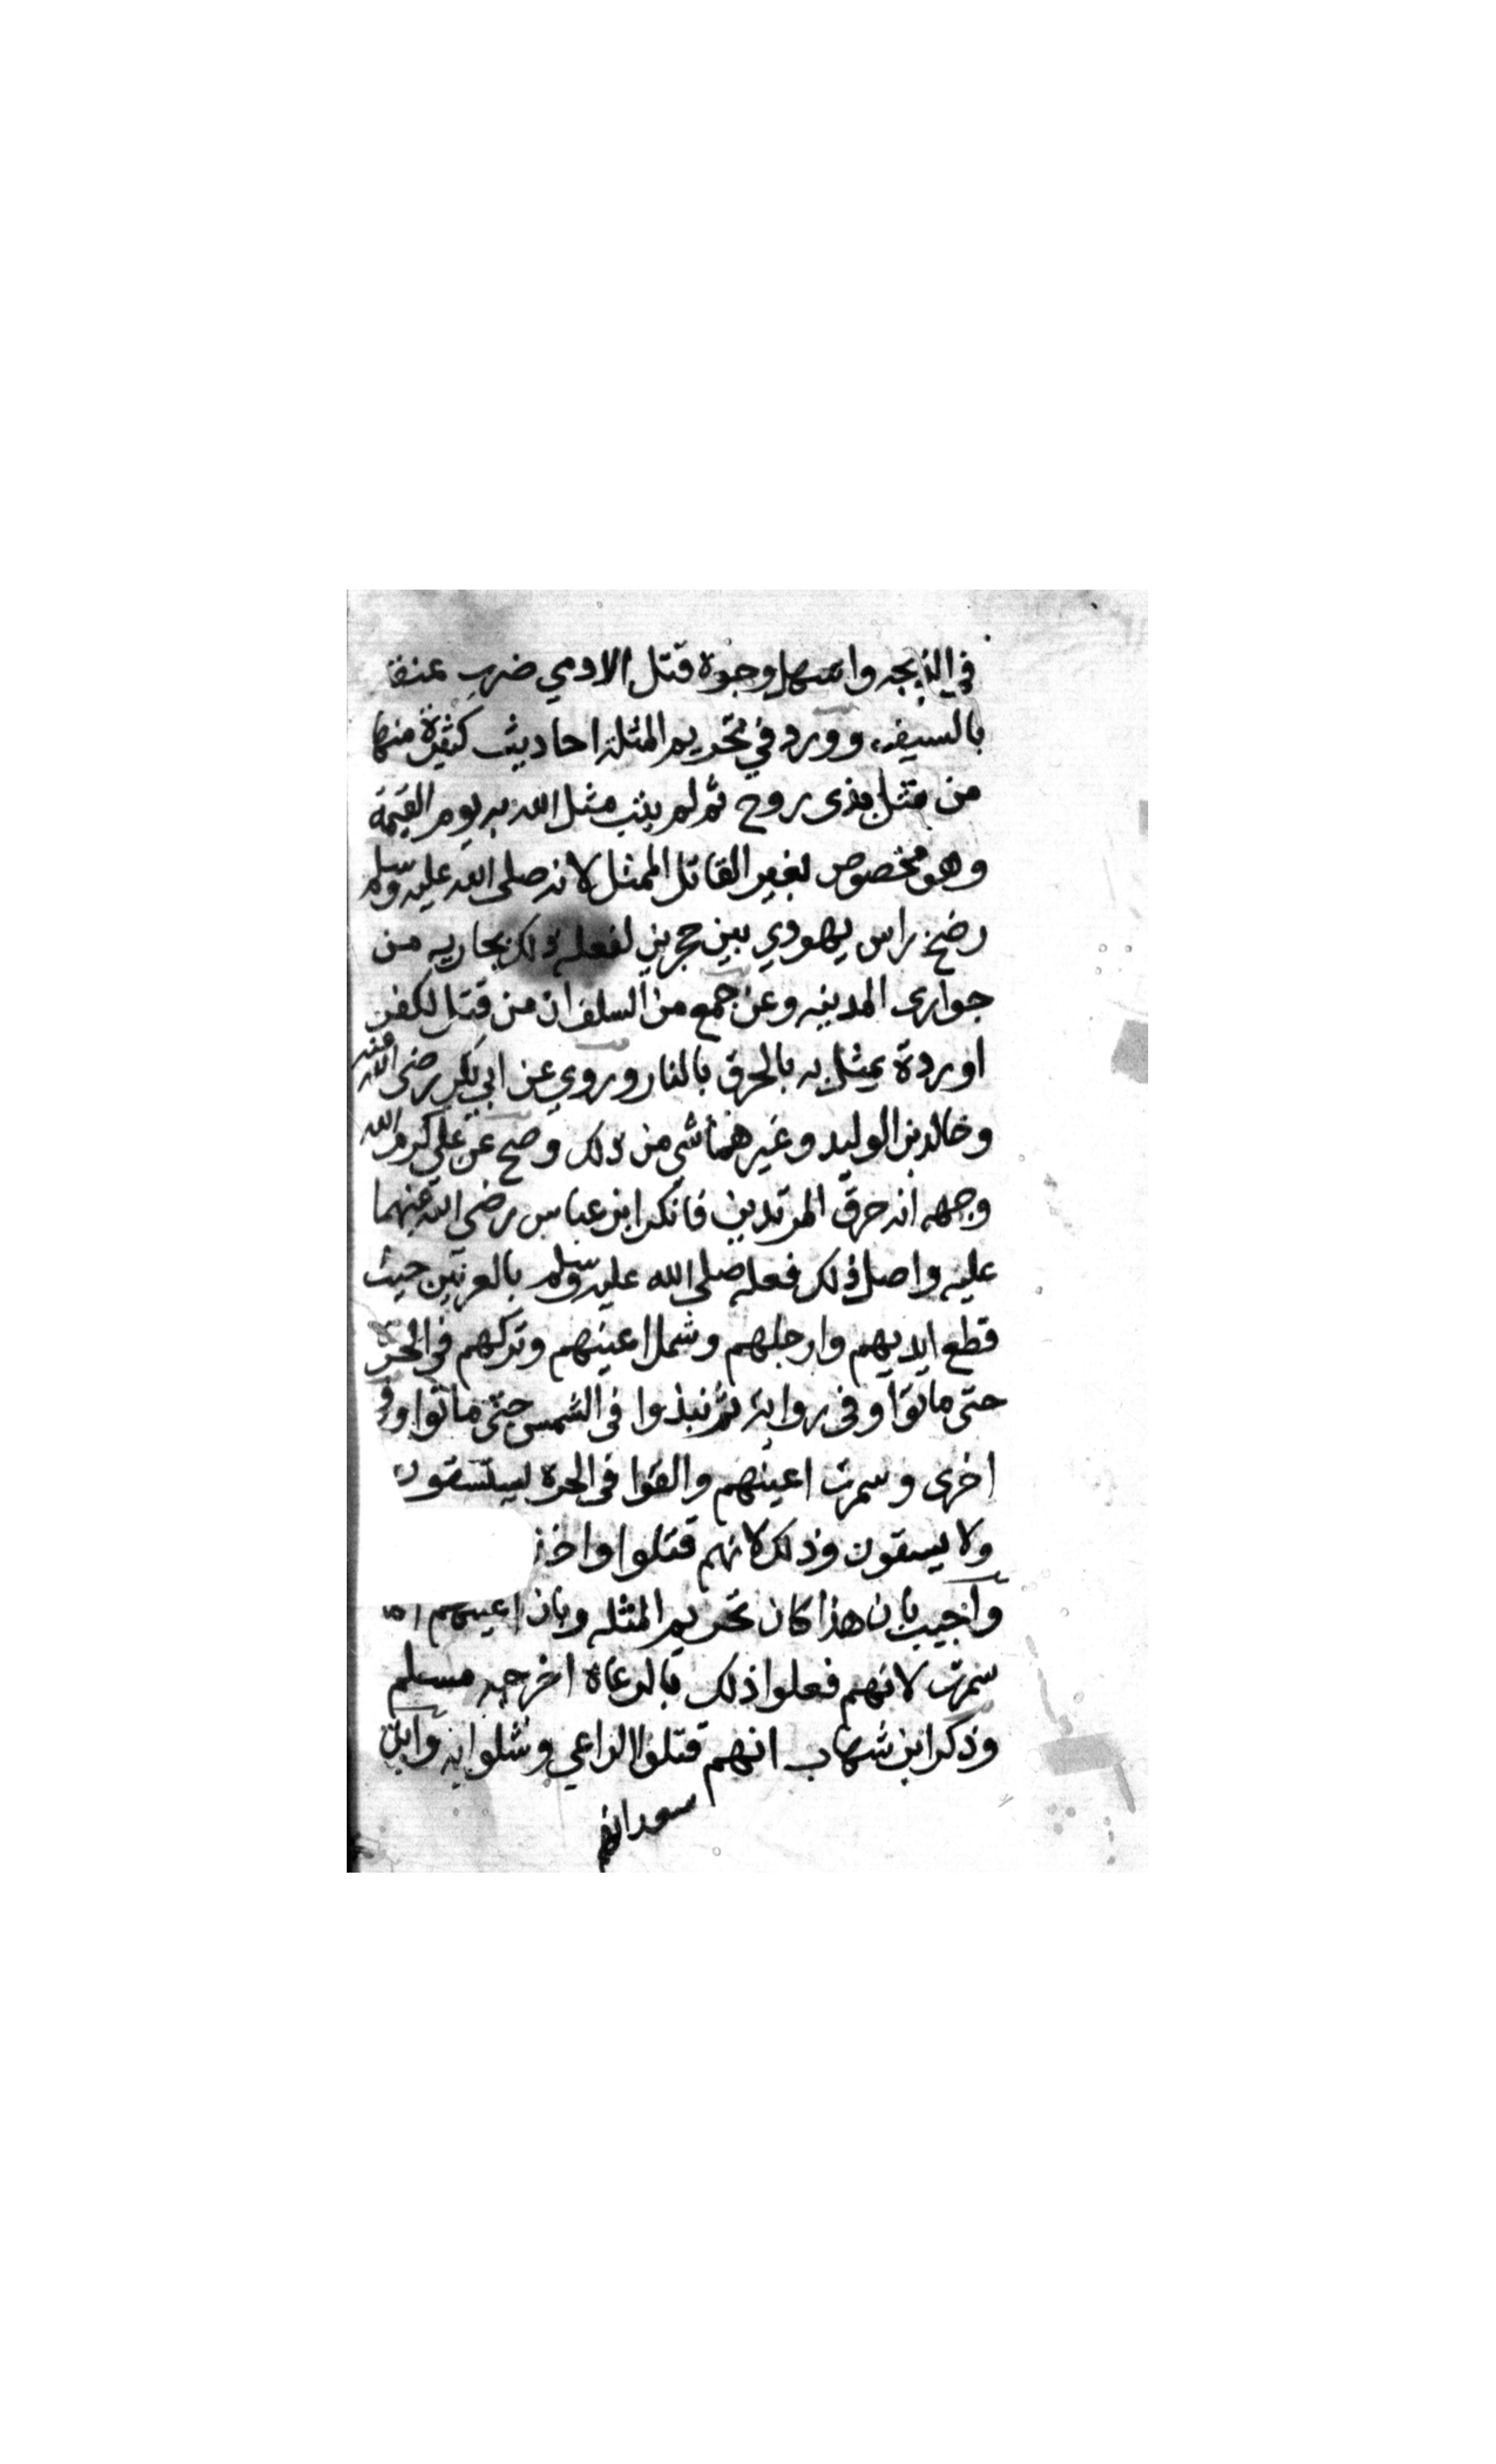 في الذبيحه واسهل وجوه قتل الادمي ضرب عنقه
بالسيف وورد في تحريم المثلة احاديث كثيرة منها
من مثل بذى روح ثم لم يتب مثل الله به يوم القيمة
وهو مخصوص بغير القاتل الممثل لانه صلى الله عليه وسلم
رضخ راس يهودي بين حجرين لفعله ذلك بجاريه من
جوارى المدينه وعن جمع من السلف ان من قتل لكفر
او ردة يمثل به بالحرق بالنار وروي عن ابي بكر رضى الله عنه
وخالد بن الوليد وغيرهما شي من ذلك وصح عن علي كرم الله
وجهه انه حرق المرتدين فانكر ابن عباس رضى الله عنهما
عليه واصل ذلك فعله صلى الله عليه وسلم بالعرنيين حيث
قطع ايديهم وارجلهم وسمل اعينهم وتركهم في الحرة
حتى ماتوا وفى رواية ثم نبذوا فى الشمس حتى ماتوا وفى
اخرى وسمرت اعينهم والقوا فى الحرة يستسقون
ولا يسقون وذلك لانهم قتلوا
واجيب بان هذا كان تحريم المثله وبان اعينهم
سمرت لانهم فعلوا ذلك بالرعاة اخرجه مسلم
وذكر ابن شهاب انهم قتلوا الراعي ومثلوا به وابن